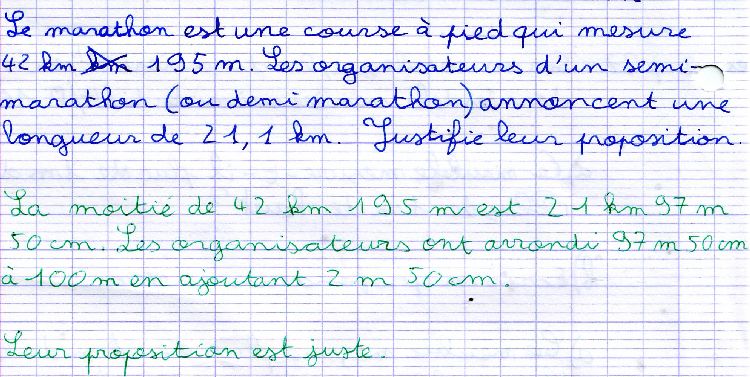 Le marathon est une course à pied qui mesure
42 km km 195 m. Les organisateurs d'un semi-
marathon (ou demi marathon) annoncent une
longueur de 21,1 km. Justifie leur proposition.
La moitié de 42 km 195 m est 21 km 97 m
50 cm. Les organisateurs ont arrondi 97 m 50 cm
à 100 m en ajoutant 2 m 50 cm.
Leur proposition est juste.